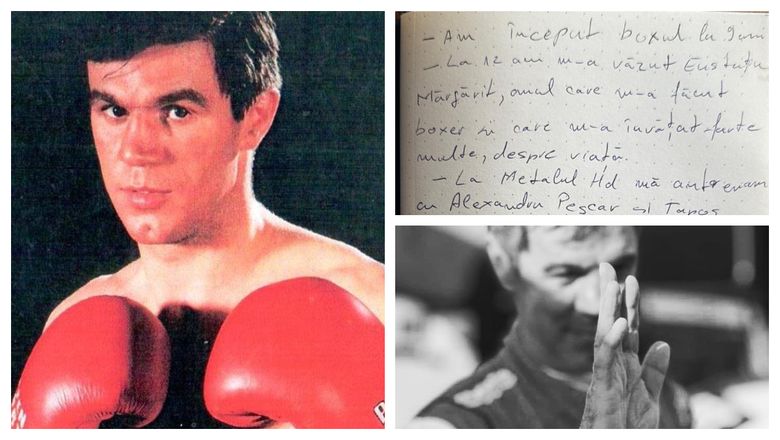 - Am început boxul la 9 ani
- La 12 ani m-a văzut Eustațiu
Mărgărit, omul care m-a făcut
boxer și care m-a învățat foarte
multe, despre viață.
- La Metalul Hd mă antrenam
cu Alexandru Pescar și